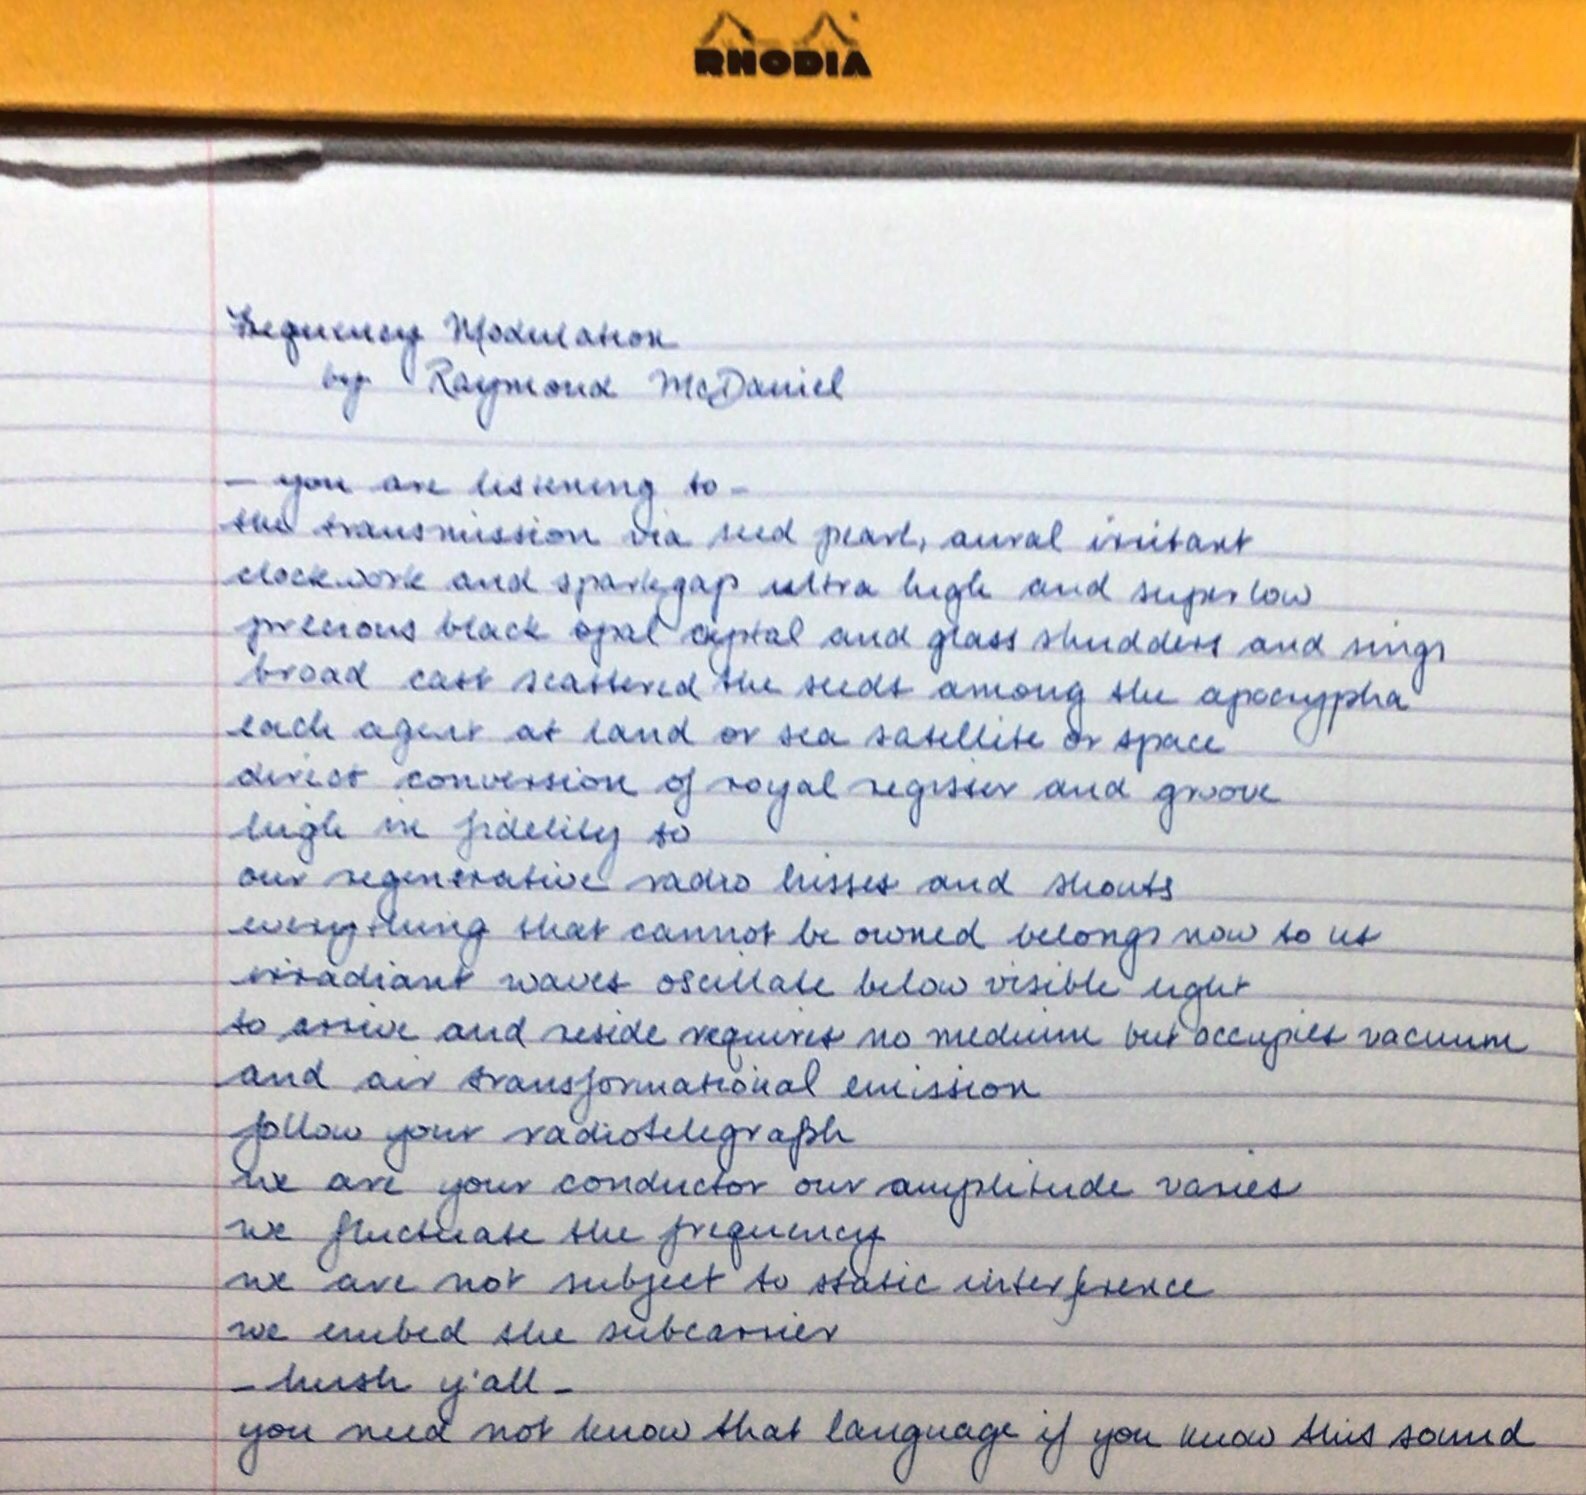 RHODIA
Frequency Modulation
by Raymond McDaniel
- you are listening to -
the transmission via seed pearl, aural irritant
clockwork and sparkgap ultra high and super low
precious black opal crystal and glass shudders and sings
broad cast scattered the seeds among the apocrypha
each agent at land or sea satellite or space
direct conversion of royal register and groove
high in fidelity to
our regenerative radio hisses and shouts
everything that cannot be owned belongs now to us
irradiant waves oscillate below visible light
to arrive and reside requires no medium but occupies vacuum
and air transformational emission
follow your radiotelegraph
we are your conductor our amplitude varies
we fluctuate the frequency
we are not subject to static interference
we embed the subcarrier
- hush y'all -
you need not know that language if you know this sound